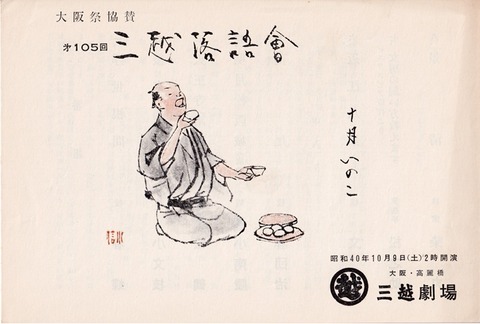 大阪祭協賛
第105回
三越落語會
十月 いのこ
昭和40年10月9日(土)2時開演
大阪・高麗橋
越 三越劇場